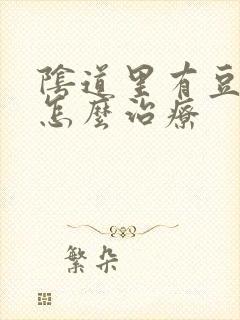 陰道里有豆
怎麼治療
繁朵